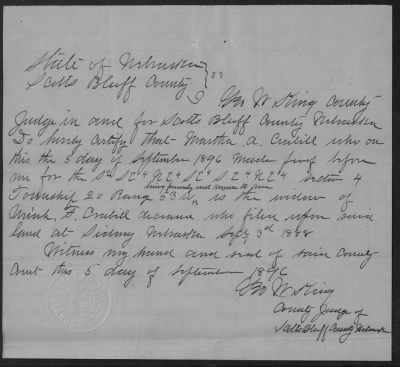 State of Nebraska
Scotts Bluff County } SS
I Geo W King County
Judge in and for Scotts Bluff County Nebraska
Do hereby certify that Martha A. Cribill who on
this the 5 day of September 1896 made proof before
me for the S2 SE4 NE4 SE4 SE4 NE4 Section 4
being formerly and known to me
Township 20 Range 53 W, is the widow of
F. Cribill deceased who filed upon said
land at Sidney Nebraska Sept 3rd 1888
Witness my hand and seal of said County
Court this 5 day of September 1896
Geo W King
County Judge of
Scotts Bluff County Nebraska